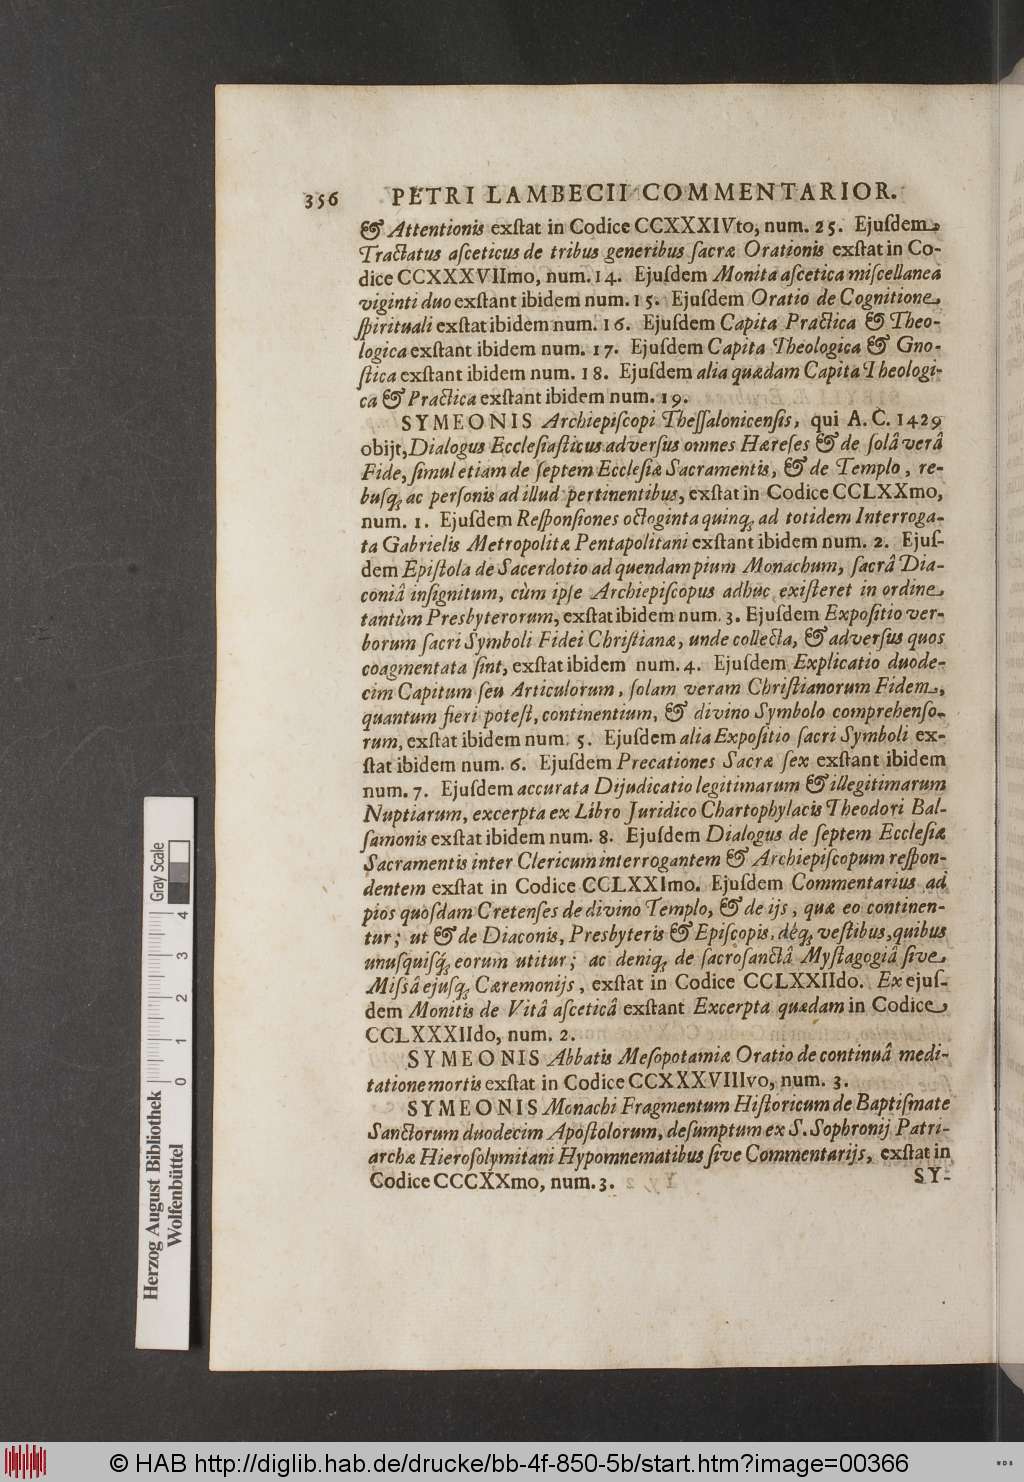 356 PETRI LAMBECII COMMENTARIOR.
& Attentionis exſtat in Codice CCXXXIVto, num. 25. Ejuſdem
Tractatus aſceticus de tribus generibus ſacræ Orationis exſtat in Co-
dice CCXXXVIImo, num. 14. Ejuſdem Monita aſcetica miſcellanea
viginti duo exſtant ibidem num. 15. Ejuſdem Oratio de Cognitione
ſpirituali exſtat ibidem num. 16. Ejuſdem Capita Practica & Theo-
logica exſtant ibidem num. 17. Ejuſdem Capita Theologica & Gno-
ſtica exſtant ibidem num. 18. Ejuſdem alia quædam Capita Theologi-
ca & Practica exſtant ibidem num. 19.
SYMEONIS Archiepiſcopi Theſſalonicenſis, qui A. C. 1429
obijt, Dialogus Eccleſiaſticus adverſus omnes Hæreſes & de ſolâ verâ
Fide, ſimul etiam de ſeptem Eccleſiæ Sacramentis, & de Templo, re-
buſq; ac perſonis ad illud pertinentibus, exſtat in Codice CCLXXmo,
num. 1. Ejuſdem Reſponſiones octoginta quinq; ad totidem Interroga-
ta Gabrielis Metropolitæ Pentapolitani exſtant ibidem num. 2. Ejuſ-
dem Epiſtola de Sacerdotio ad quendam pium Monachum, ſacrâ Dia-
coniâ inſignitum, cùm ipſe Archiepiſcopus adhuc exiſteret in ordine
tantùm Presbyterorum, exſtat ibidem num. 3. Ejuſdem Expoſitio ver-
borum ſacri Symboli Fidei Chriſtianæ, unde collecta, & adverſus quos
coagmentata ſint, exſtat ibidem num. 4. Ejuſdem Explicatio duode-
cim Capitum ſeu Articulorum, ſolam veram Chriſtianorum Fidem,
quantum fieri poteſt, continentium, & divino Symbolo comprehenſo-
rum, exſtat ibidem num. 5. Ejuſdem alia Expoſitio ſacri Symboli ex-
ſtat ibidem num. 6. Ejuſdem Precationes Sacræ ſex exſtant ibidem
num. 7. Ejuſdem accurata Dijudicatio legitimarum & illegitimarum
Nuptiarum, excerpta ex Libro Juridico Chartophylacis Theodori Bal-
ſamonis exſtat ibidem num. 8. Ejuſdem Dialogus de ſeptem Eccleſiæ
Sacramentis inter Clericum interrogantem & Archiepiſcopum reſpon-
dentem exſtat in Codice CCLXXImo. Ejuſdem Commentarius ad
pios quoſdam Cretenſes de divino Templo, & de ijs, quæ eo continen-
tur; ut & de Diaconis, Presbyteris & Epiſcopis, déq; veſtibus, quibus
unuſquiſq; eorum utitur; ac deniq; de ſacroſanctâ Myſtagogiâ ſive
Miſſâ ejuſq; Cæremonijs, exſtat in Codice CCLXXIIdo. Ex ejuſ-
dem Monitis de Vitâ aſceticâ exſtant Excerpta quædam in Codice
CCLXXXIIdo, num. 2.
SYMEONIS Abbatis Meſopotamiæ Oratio de continuâ medi-
tatione mortis exſtat in Codice CCXXXVIIIvo, num. 3.
SYMEONIS Monachi Fragmentum Hiſtoricum de Baptiſmate
Sanctorum duodecim Apoſtolorum, deſumptum ex S. Sophronij Patri-
archæ Hieroſolymitani Hypomnematibus ſive Commentarijs, exſtat in
Codice CCCXXmo, num. 3.
SY-
Herzog August Bibliothek
Wolfenbüttel
0 1 2 3 4
Gray Scale
© HAB http://diglib.hab.de/drucke/bb-4f-850-5b/start.htm?image=00366